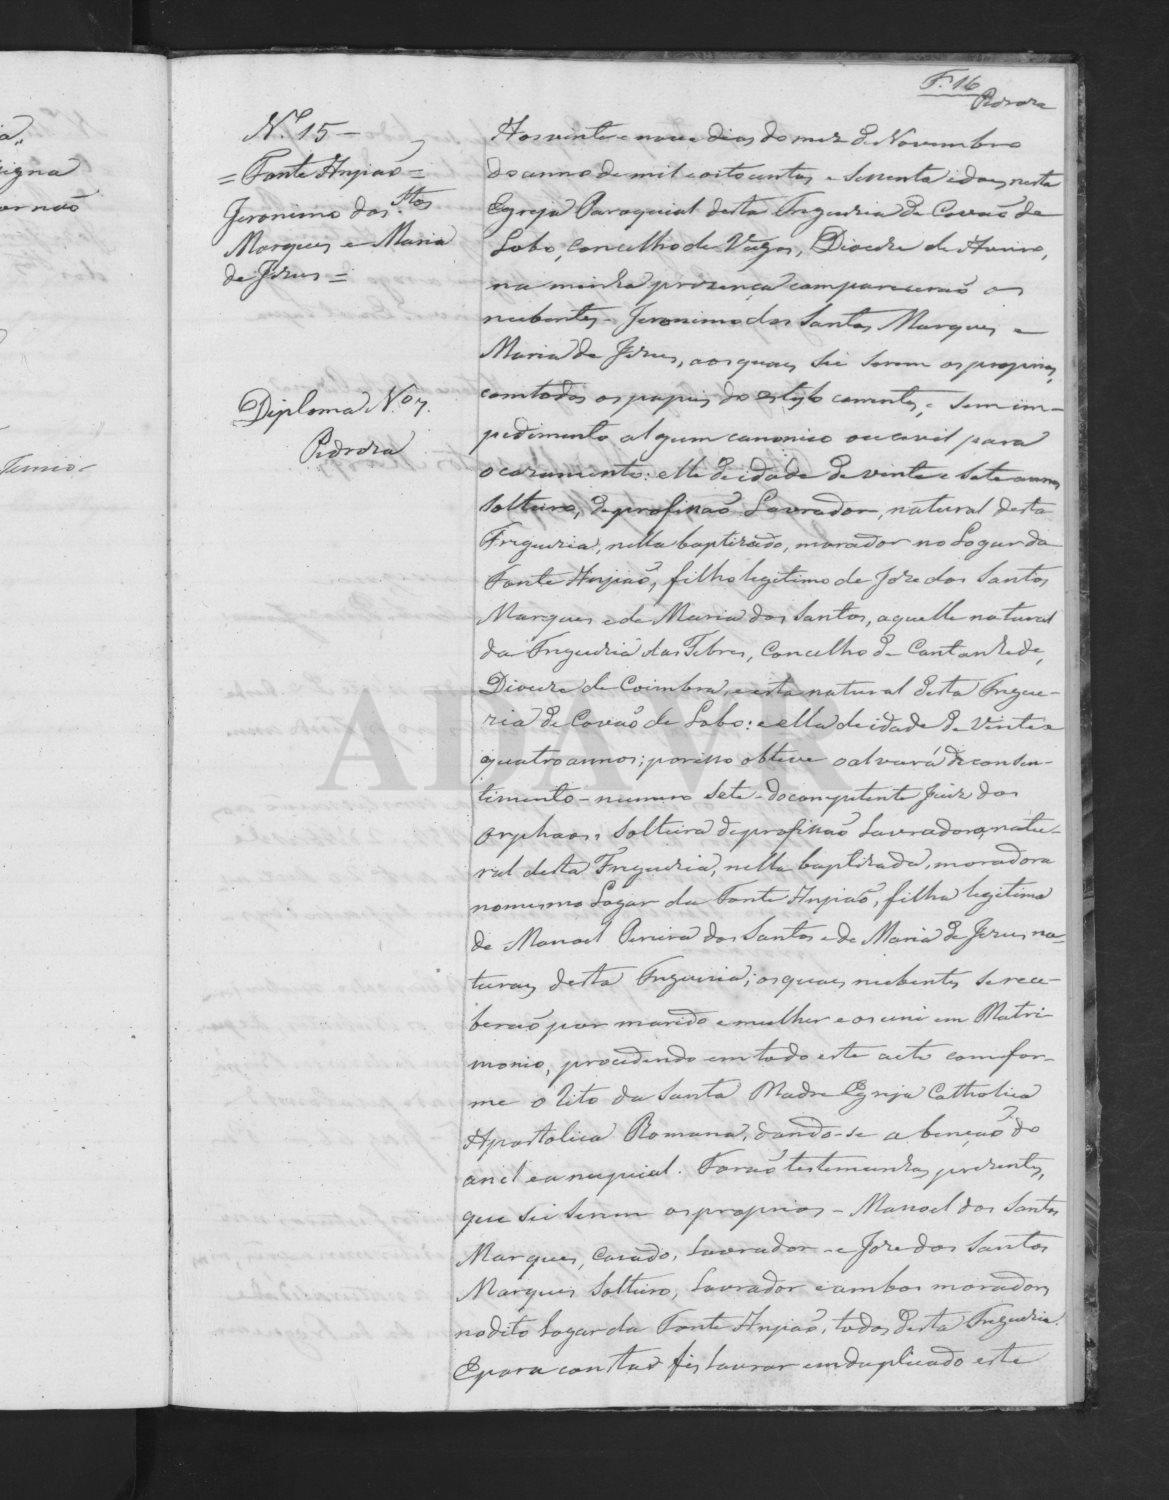 F. 16
Pedroza
N.º 15 –
= Fonte Anjiaõ =
Jeronimo dos S.tos
Marques e Maria
de Jesus =
Diploma N.º 7.
Pedroza
Aos vinte e nove dias do mez de Novembro
do anno de mil e oito centos e settenta e dous nesta
Egreja Paroquial desta Freguezia de Covaõ de
Lobo, Concelho de Vagos, Diocese de Aveiro,
na minha prezença compareceraõ os
nubentes – Jeronimo dos Santos Marques e
Maria de Jesus, aos quaes sei serem os proprios,
com todos os papeis do estylo correntes, e sem im-
pedimento algum canonico ou civil para
o cazamento: elle de idade de vinte e sete annos
solteiro, de profissaõ Lavrador, natural desta
Freguezia, nella baptizado, morador no Logar da
Fonte Anjiaõ, filho legitimo de Joze dos Santos
Marques e de Maria dos Santos, aquelle natural
da Freguezia das Febres, Concelho de Cantanhede,
Diocese de Coimbra, e esta natural desta Fregue-
zia de Covaõ de Lobo: e ella de idade de vinte e
quatro annos; por isso obteve o alvará de consen-
timento – numero sete – do competente Juiz dos
Orphaos, solteira de profissaõ Lavradora, natu-
ral desta Freguezia, nella baptizada, moradora
no mesmo Logar da Fonte Anjiaõ, filha legitima
de Manoel Pereira dos Santos e de Maria de Jesus na-
turaes desta Freguezia; os quaes nubentes se rece-
beraõ por marido e mulher e os uni em Matri-
monio, procedendo em todo este acto comfor-
me o Rito da Santa Madre Egreja Catholica
Apostolica Romana, dando-se a bençaõ do
anel e a nupcial. Foraõ testemunhas prezentes,
que sei serem os proprios – Manoel dos Santos
Marques, Cazado, Lavrador – e Joze dos Santos
Marques Solteiro, Lavrador e ambos moradores
no dito Logar da Fonte Anjiaõ, todos desta Freguezia.
E para constar fis lavrar em duplicado este
ADAVR